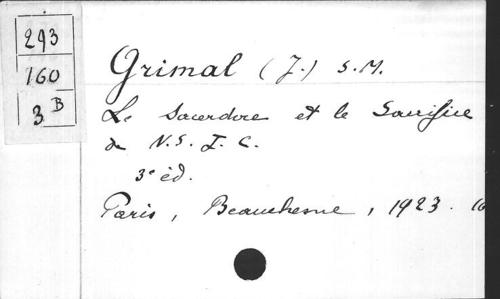 293
160
3 B
Grimal (J.) S.M.
Le Sacerdoce et le Sacrifice
de N.S.J.C.
3e éd.
Paris, Beauchesne, 1923. 16